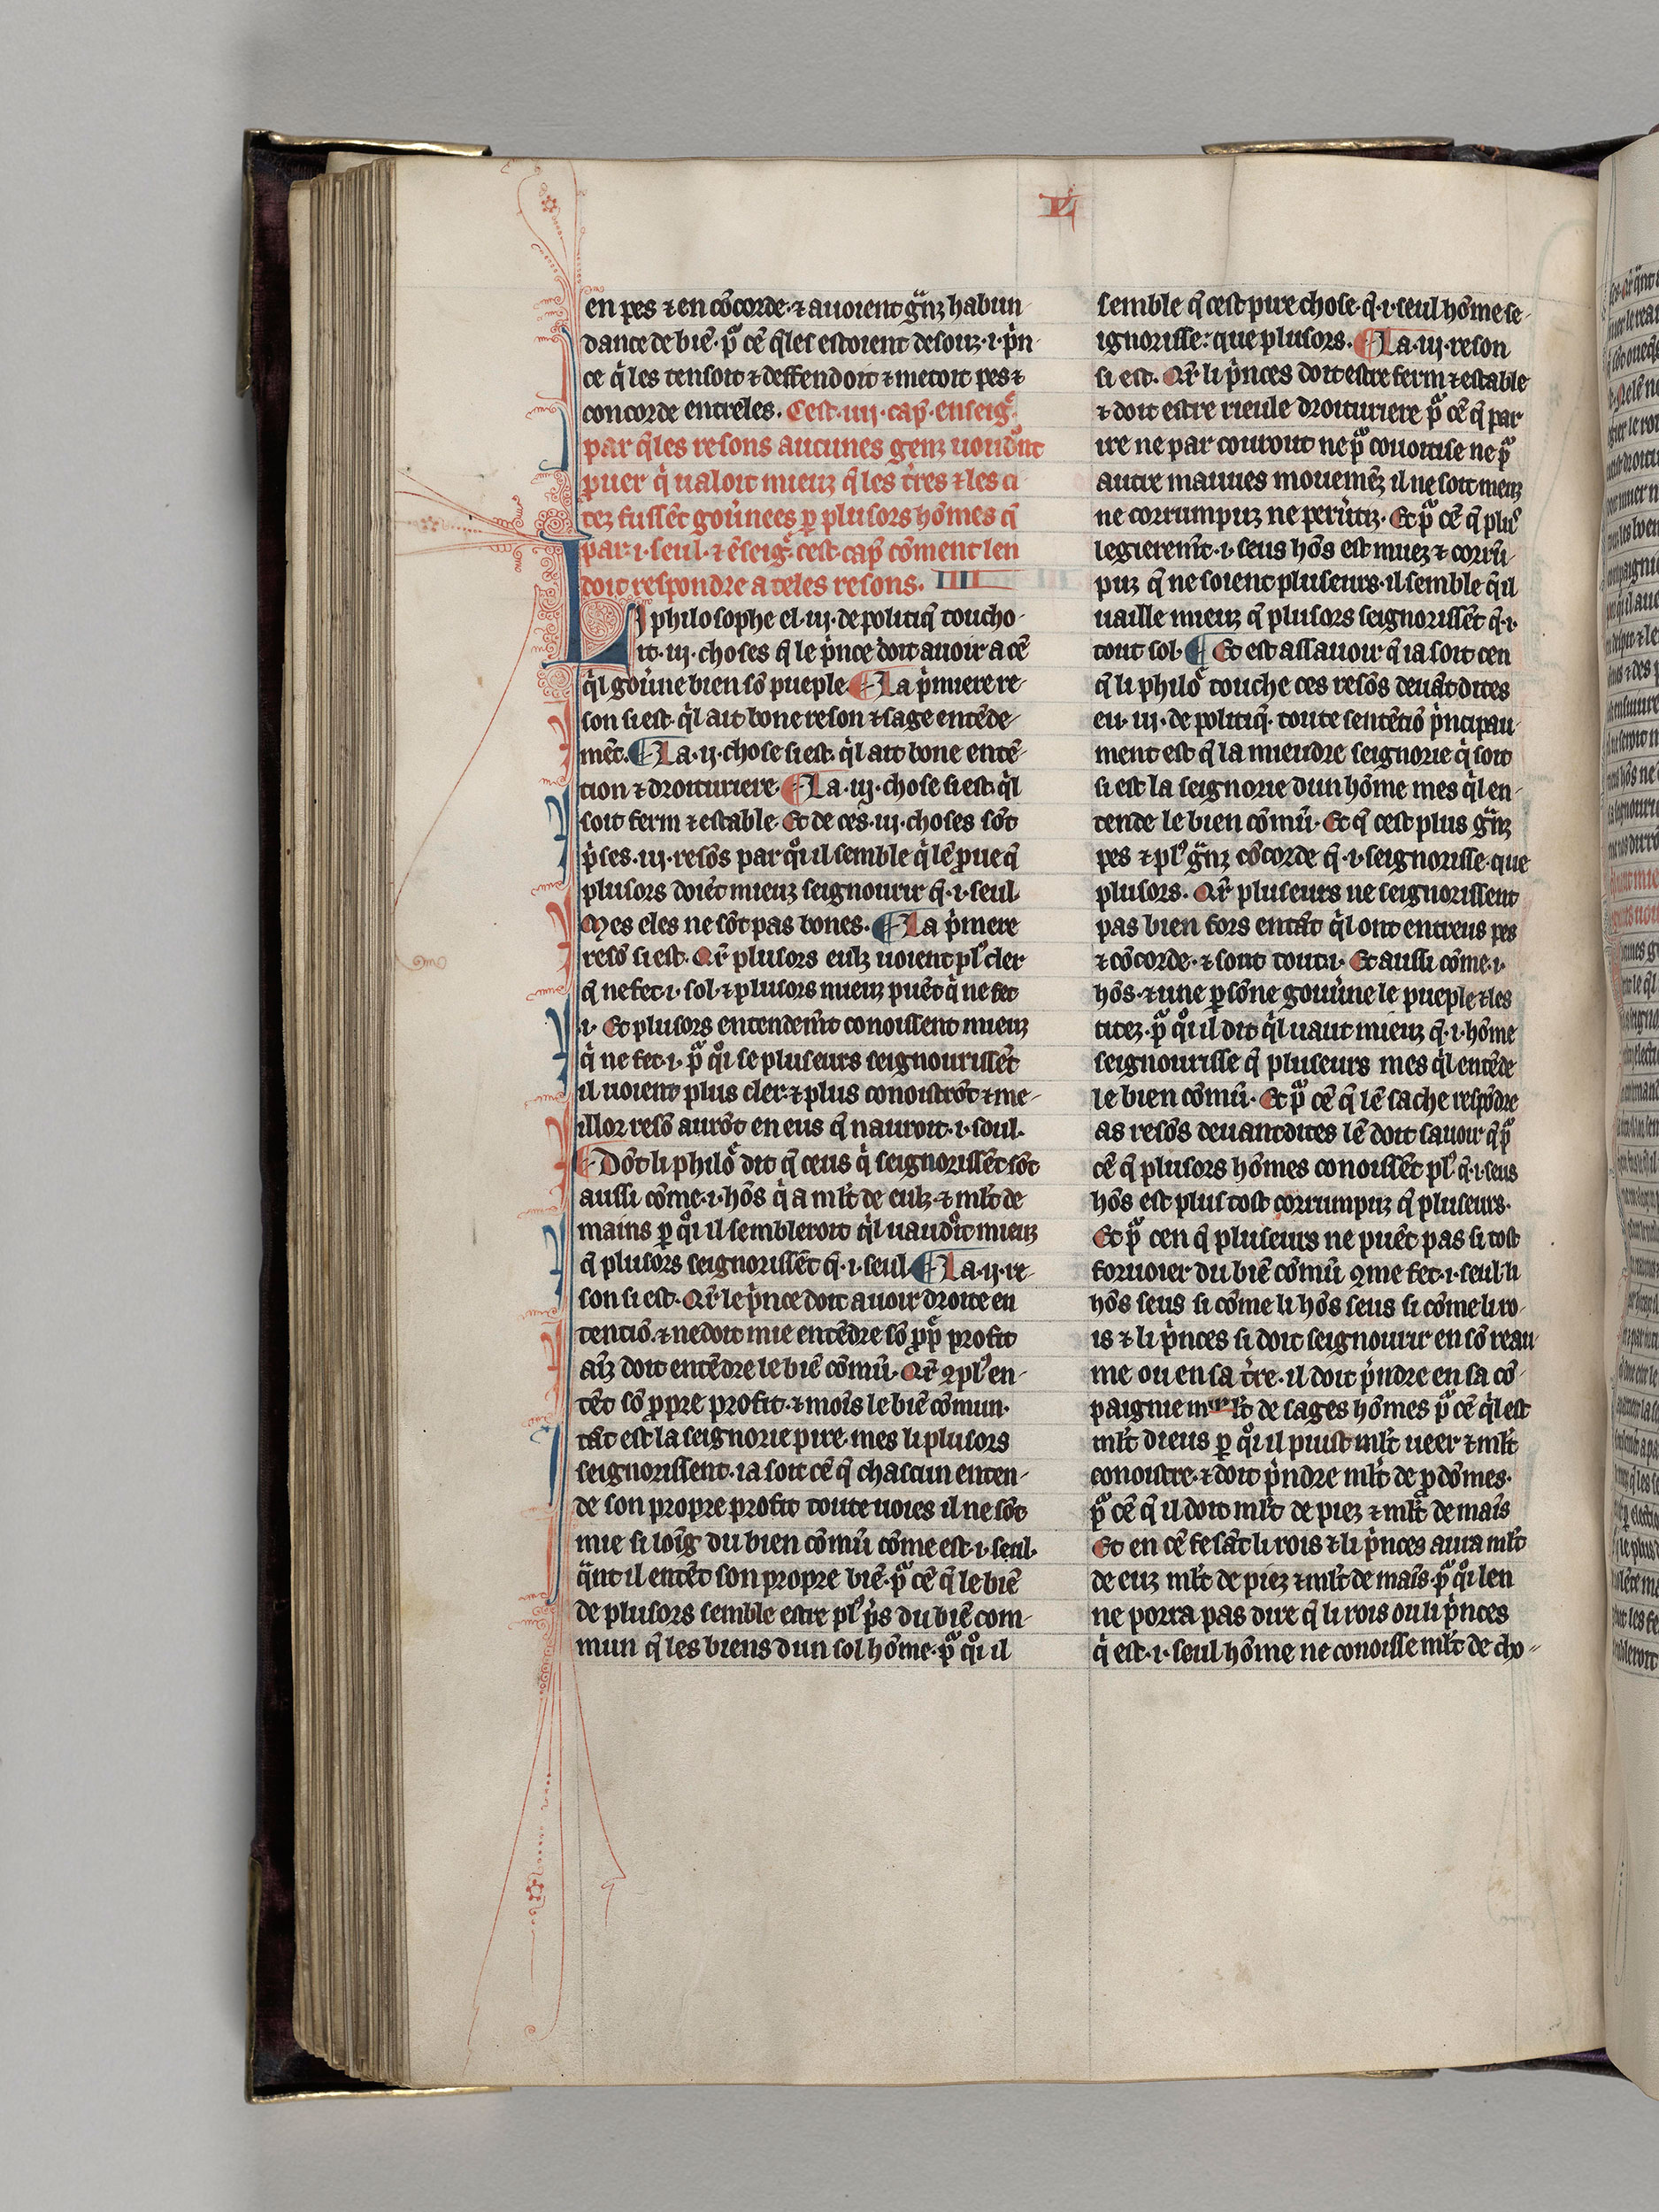 L
en pes ⁊ en cõcorde· ⁊ auoient gᷓnz habun-
dance de biẽ· pᷓ cẽ q̃les estoient desouz ·i· pͥn-
ce qͥ les tensoit ⁊ deffendoit ⁊ metoit pes ⁊
concorde entreles. Cest ·iiij· cap̃· enseig̃
par q̃les resons aucunes genz uoudͦnt
ꝓuer qͥ ualoit mieuz q̃ les t̾res ⁊ les ci
tez fussẽt gou̾nees ꝑ plusors hõmes q̃
par ·i· seul· ⁊ ẽseig̃· cest cap̃ cõment len
doit respondre a teles resons. IIII
LI philosophe el ·iij· de politiq̃ toucho-
it ·iij· choses q̃ le pͥnce doit auoir a cẽ
qͥl gou̾ne bien sõ pueple ¶ La pͥmiere re-
son si est· qͥl ait bone reson ⁊ sage entẽde-
mẽt· ¶ La ·ij· chose si est· qͥl ait bone entẽ-
tion ⁊ droituriere· ¶ La ·iij· chose si est· qͥl
soit ferm ⁊ estable· Et de ces ·iij· choses sõt
pͥses ·iij· resõs par qͦi il semble qͥ lẽ prueq̃
plusors doiẽt mieuz seignourir q̃ ·i· seul·
Mes eles ne sõt pas bones. ¶ La pͥmere
resõ si est· Qr̃ plusors eulz uoient plꝰ cler
q̃ ne fet ·i· sol· ⁊ plusors mieuz puẽt qͥ ne fet
·i· Et plusors entendem̃t conoissent mieuz
qͥ ne fet ·i· pᷓ qͦi se pluseurs seignourissẽt
il uoient plus cler· ⁊ plus conoistrõt ⁊ me-
illor resõ aurõt en eus q̃ nauroit ·i· soul·
¶ Dõt li philõ dit q̃ ceus qͥ seignorissẽt sõt
aussi cõme ·i· hõs qͥ a ml̃t de eulz· ⁊ ml̃t de
mains ꝑ qͦi il sembleroit qͥl uaudͦit mieuz
q̃ plusors seignorissẽt q̃ ·i· seul· ¶ La ·ij· re-
son si est· Qr̃ le pͥnce doit auoir droite en
tenciõ· ⁊ ne doit mie entẽdre sõ ꝓp̃ profit
aĩz doit entẽdre le biẽ cõmũ· Qr̃ ꝯ plꝰ en-
tẽt sõ ꝓpre profit· ⁊ moĩs le biẽ cõmun·
tãt est la seignorie pire· mes li plusors
seignorissent· ia soit cẽ q̃ chascun enten-
de son propre profit toute uoies il ne sõt
mie si loĩg du bien cõmũ cõme est ·i· seul·
qᷓnt il entẽt son propre biẽ· pᷓ cẽ q̃ le biẽ
de plusors semble estre plꝰ pͥs du biẽ com-
mun q̃ les biens dun sol hõme· pᷓ qͦi il
semble q̃ cest pire chose· q̃ ·i· seul hõme se-
ignorisse: que plusors. ¶ La ·iij· reson
si est. Qr̃ li pͥnces doit estre ferm ⁊ estable
⁊ doit estre rieule droituriere pᷓ cẽ q̃ par
ire ne par courout ne pᷓ couoitise ne pᷓ
autre mauues mouemẽz il ne soit meuz
ne corrumpuz ne peru̾tiz· Et pᷓ cẽ q̃ plꝰ
legierem̃t ·i· seus hõs est muez ⁊ corrũ-
puz q̃ ne soient pluseurs· il semble qͥ il
uaille mieuz q̃ plusors seignorissẽt q̃ ·i·
tout sol· ¶ Et est assauoir q̃ ia soit cen
q̃ li philõ touche ces resõs deuãt dites
eu ·iij· de politiq̃· toute sentẽtiõ pͥncipau-
ment est q̃ la mieudre seignorie qͥ soit
si est la seignorie dun hõme mes qͥl en-
tende le bien cõmũ· Et q̃ cest plus gᷓnz
pes ⁊ plꝰ gᷓnz cõcorde q̃ ·i· seignorisse· que
plusors. Qr̃ pluseurs ne seignorissent
pas bien fors entãt qͥl ont entreus pes
⁊ cõcorde· ⁊ sont tout ·i· Et aussi cõme ·i·
hõs· ⁊ une ꝑsõne gouu̾ne le pueple ⁊ les
citez· pᷓ qͦi il dit qͥl uaut mieuz q̃ ·i· hõme
seignourisse q̃ pluseurs mes qͥl entẽde
le bien cõmũ· Et pᷓ cẽ q̃ lẽ sache respõdre
as resõs deuantdites lẽ doit sauoir q̃ pᷓ
cẽ q̃ plusors hõmes conoissẽt plꝰ q̃ ·i· seus
hõs est plus tost corrumpuz q̃ pluseurs·
Et pᷓ cen q̃ pluseurs ne puẽt pas si tost
foruoier du biẽ cõmũ ꝯme fet ·i· seul· li
hõs seus si cõme li hõs seus si cõme li ro-
is ⁊ li pͥnces si doit seignourir en sõ reau-
me ou en sa t̾re· il doit pͥndre en sa cõ-
paignie ml̃t de sages hõmes pᷓ cẽ qͥl est
ml̃t dieus ꝑ qͦi il puist ml̃t ueer ⁊ ml̃t
conoistre· ⁊ doit pͥndre ml̃t de ꝓdõmes·
pᷓ cẽ q̃ il doit ml̃t de piez ⁊ ml̃t de maĩs
Et en cẽ fesãt li rois ⁊ li pͥnces aura ml̃t
de euz ml̃t de piez ⁊ ml̃t de maĩs· pᷓ qͦi len
ne porra pas dire q̃ li rois ou li pͥnces
qͥ est ·i· seul hõme ne conoisse ml̃t de cho-